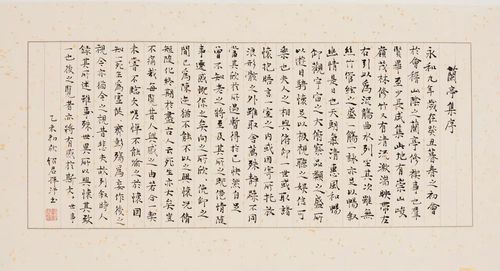 蘭亭集序
永和九年歲在癸丑暮春之初會
於會稽山陰之蘭亭修禊事也羣
賢畢至少長咸集此地有崇山峻
嶺茂林修竹又有清流激湍映帶左
右引以為流觴曲水列坐其次雖無
絲竹管絃之盛一觴一詠亦足以暢敘
幽情是日也天朗氣清惠風和暢
仰觀宇宙之大俯察品類之盛所
以遊目騁懷足以極視聽之娛信可
樂也夫人之相與俯仰一世或取諸
懷抱悟言一室之內或因寄所託放
浪形骸之外雖取舍萬殊靜躁不同
當其欣於所遇暫得於己快然自足
曾不知老之將至及其所之既倦情隨
事遷感慨係之矣向之所欣俛仰之
間已為陳迹猶不能不以之興懷況脩
短隨化終期於盡古人云死生亦大矣豈
不痛哉每覽昔人興感之由若合一契
未嘗不臨文嗟悼不能喻之於懷固
知一死生為虛誕齊彭殤為妄作後之
視今亦猶今之視昔悲夫故列敘時人
錄其所述雖世殊事異所以興懷其致
一也後之覽者亦將有感於斯文
乙未初秋 書